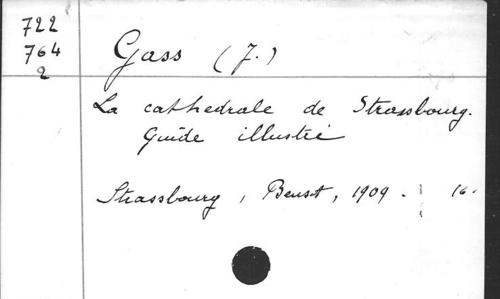 722
764
2
Gass (J.)
La cathedrale de Strassbourg.
Guide illustré
Strassbourg, Beust, 1909. 16.